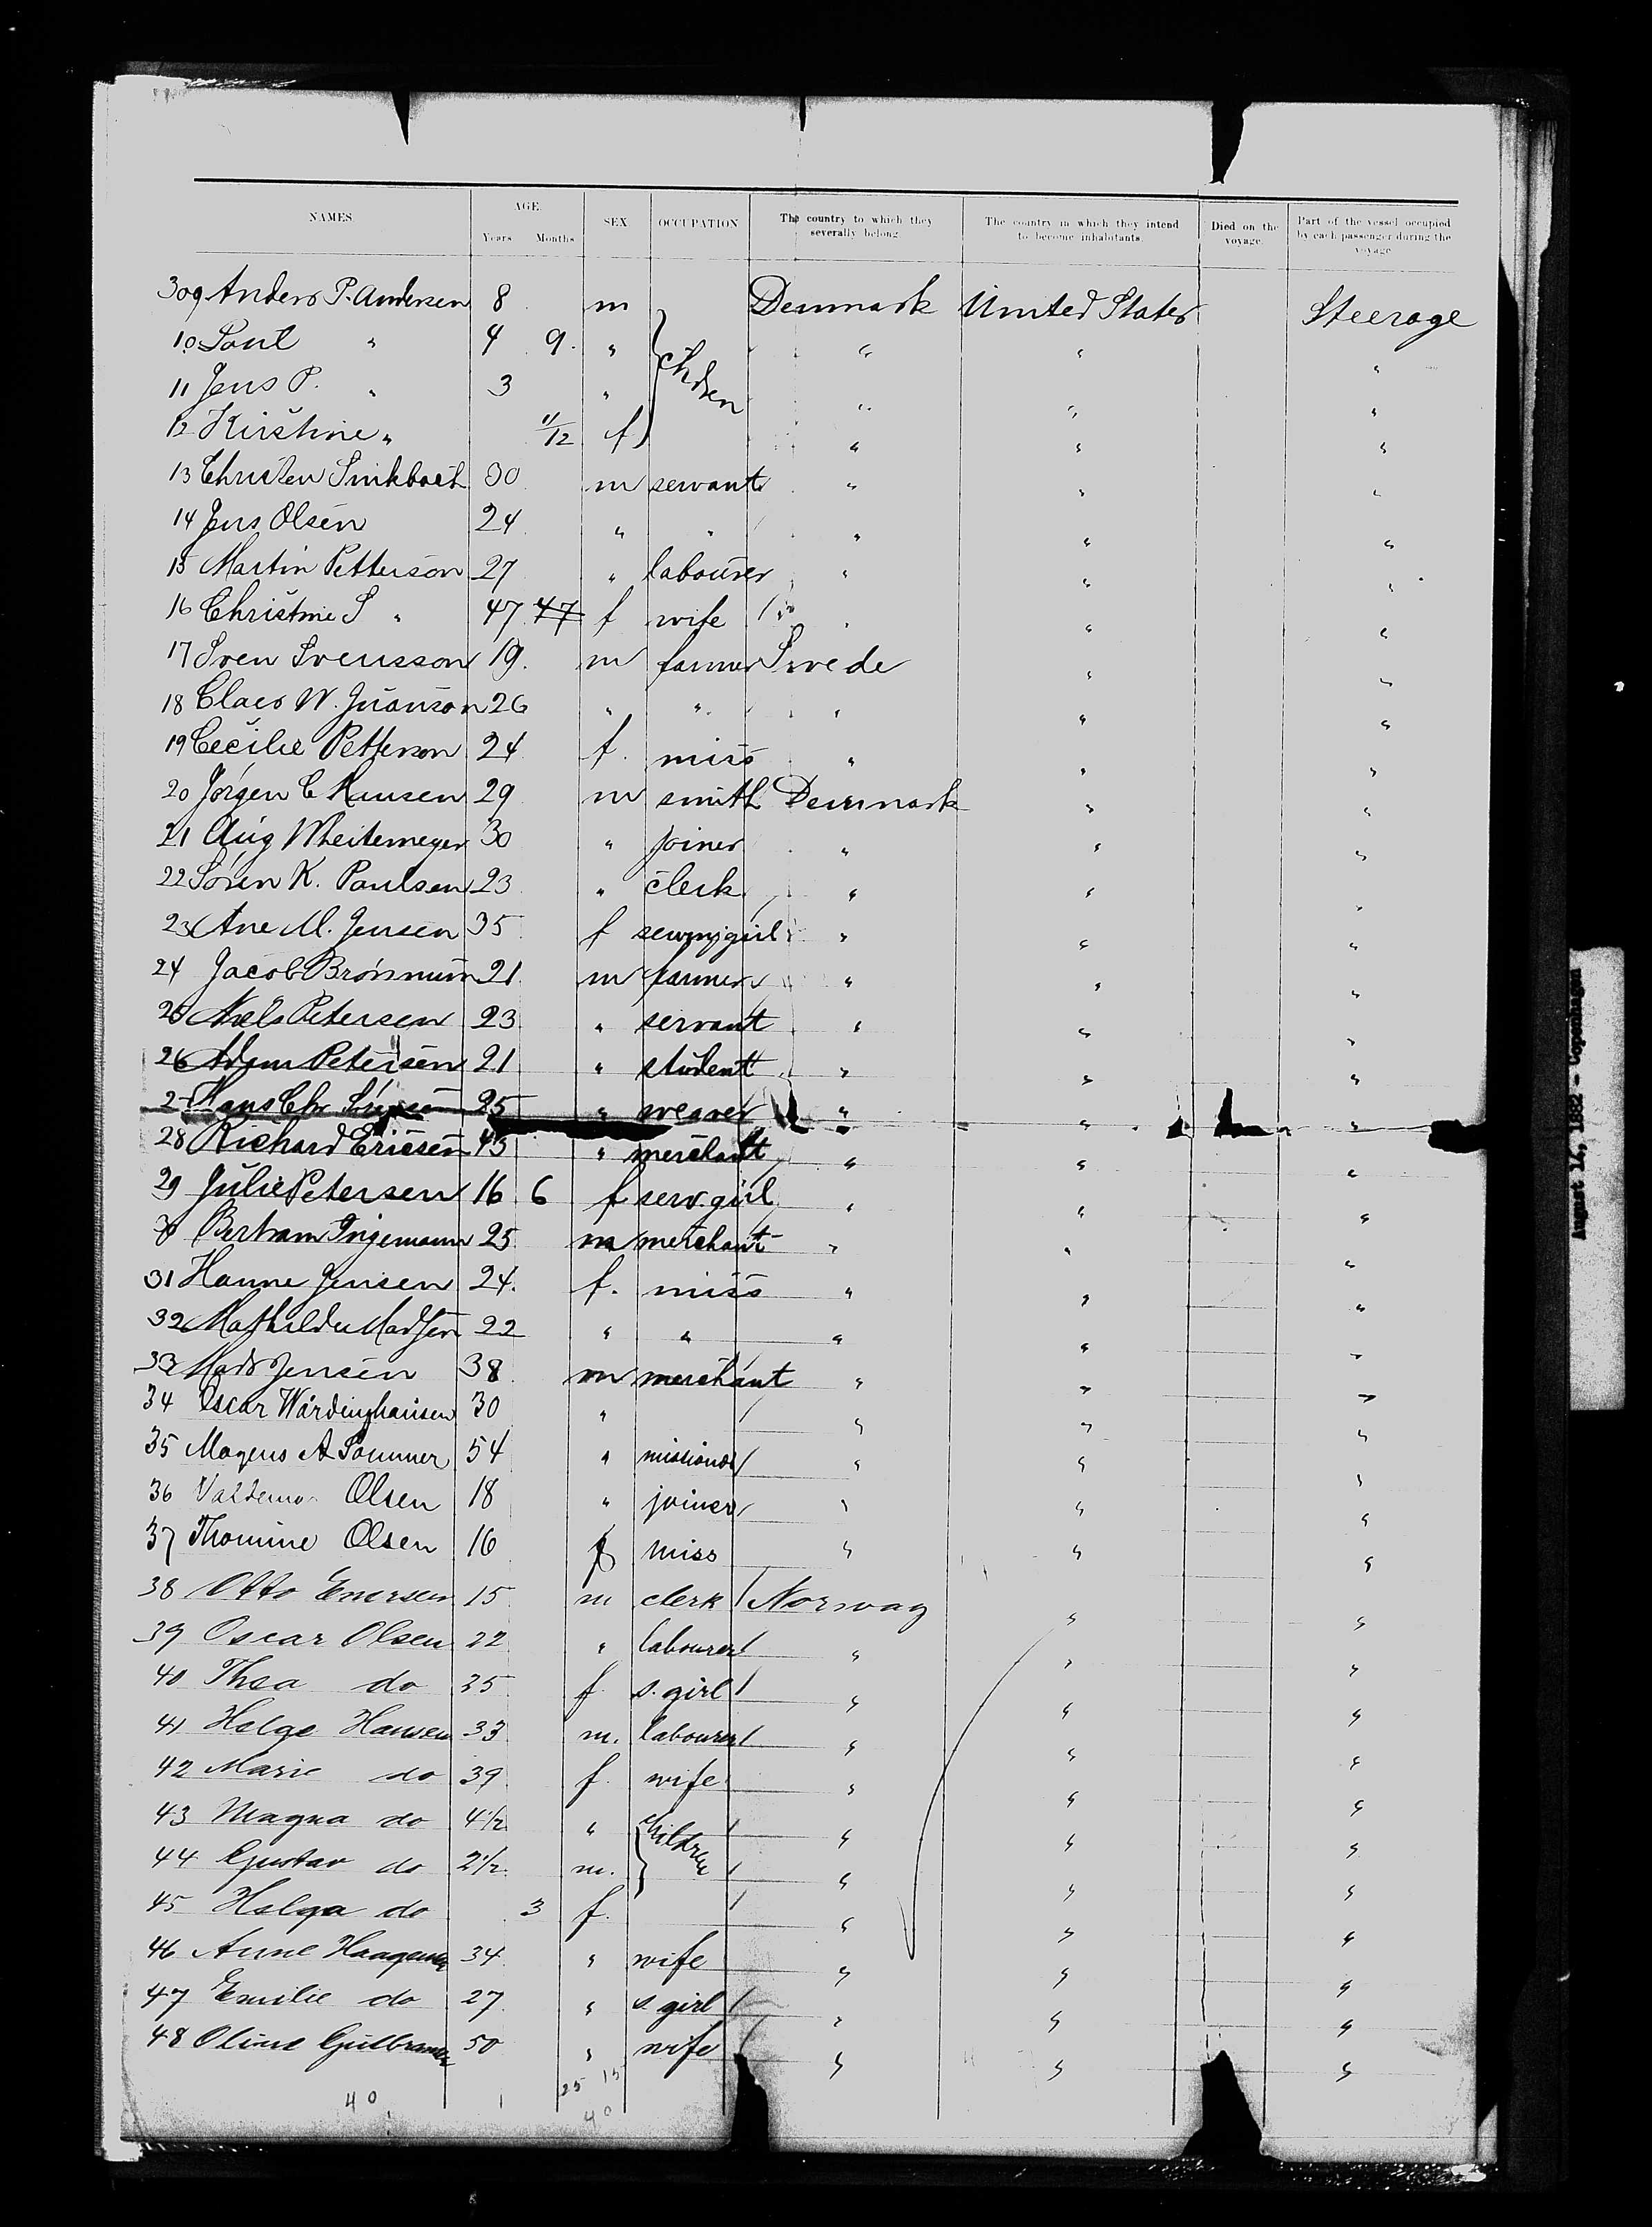 NAMES. AGE. SEX OCCUPATION The country to which they severally belong The country in which they intend to become inhabitants. Died on the voyage. Part of the vessel occupied by each passenger during the voyage
Years Months
309 Anders P. Andersen 8 m Denmark United States Steerage
10 Poul " 4 9. " children " " "
11 Jens P. " 3 " " " "
12 Kirstine " 11/12 f " " "
13 Christen 30 m servant " " "
14 Jens Olsen 24 " " " " "
15 Martin Petterson 27 " labourer " " "
16 Christine S " 47 47 f wife " " "
17 Sven Svensson 19. m farmer Swede " "
18 Claes W. 26 " " " " "
19 Cecilie Petterson 24 f. miss " " "
20 Jörgen C Hansen 29 m smith Denmark " "
21 Aug Wheitemeyer 30 " joiner " " "
22 Sören K. Paulsen 23 " clerk " " "
23 Ane M. Jensen 35 f sewing girl " " "
24 Jacob Brönnum 21. m farmer " " "
25 Niels Petersen 23 " servant " " "
26 Adam Petersen 21 " student " " "
2 Hans Chr 25 " weaver " " "
28 Richard Ericsen 43 " merchant " " "
29 Julie Petersen 16 6 f serv. girl " " "
30 Bertram Ingemann 25 m merchant " " "
31 Hanne Jensen 24. f. miss " " "
32 Mathilde Madsen 22 " " " " "
33 Mads Jensen 38 m merchant " " "
34 Oscar Wärdinghausen 30 " " " "
35 Mogens A Sommer 54 " missionar " " "
36 Valdemar Olsen 18 " joiner " " "
37 Thomine Olsen 16 f miss " " "
38 Otto Enersen 15 m clerk Norway " "
39 Oscar Olsen 22 " labourer " " "
40 Thea do 35 f. s. girl " " "
41 Helge Hansen 33 m. labourer " " "
42 Marie do 39 f. wife " " "
43 Magna do 4 1/2 " children " " "
44 Gustav do 2 1/2 m. " " "
45 Helga do 3 f. " " "
46 Anne Haagensen 34 " wife " " "
47 Emilie do 27 " s girl " " "
48 Oline Gulbransen 50 " wife " " "
25 15
40 40
August 14, 1882 - Copenhagen